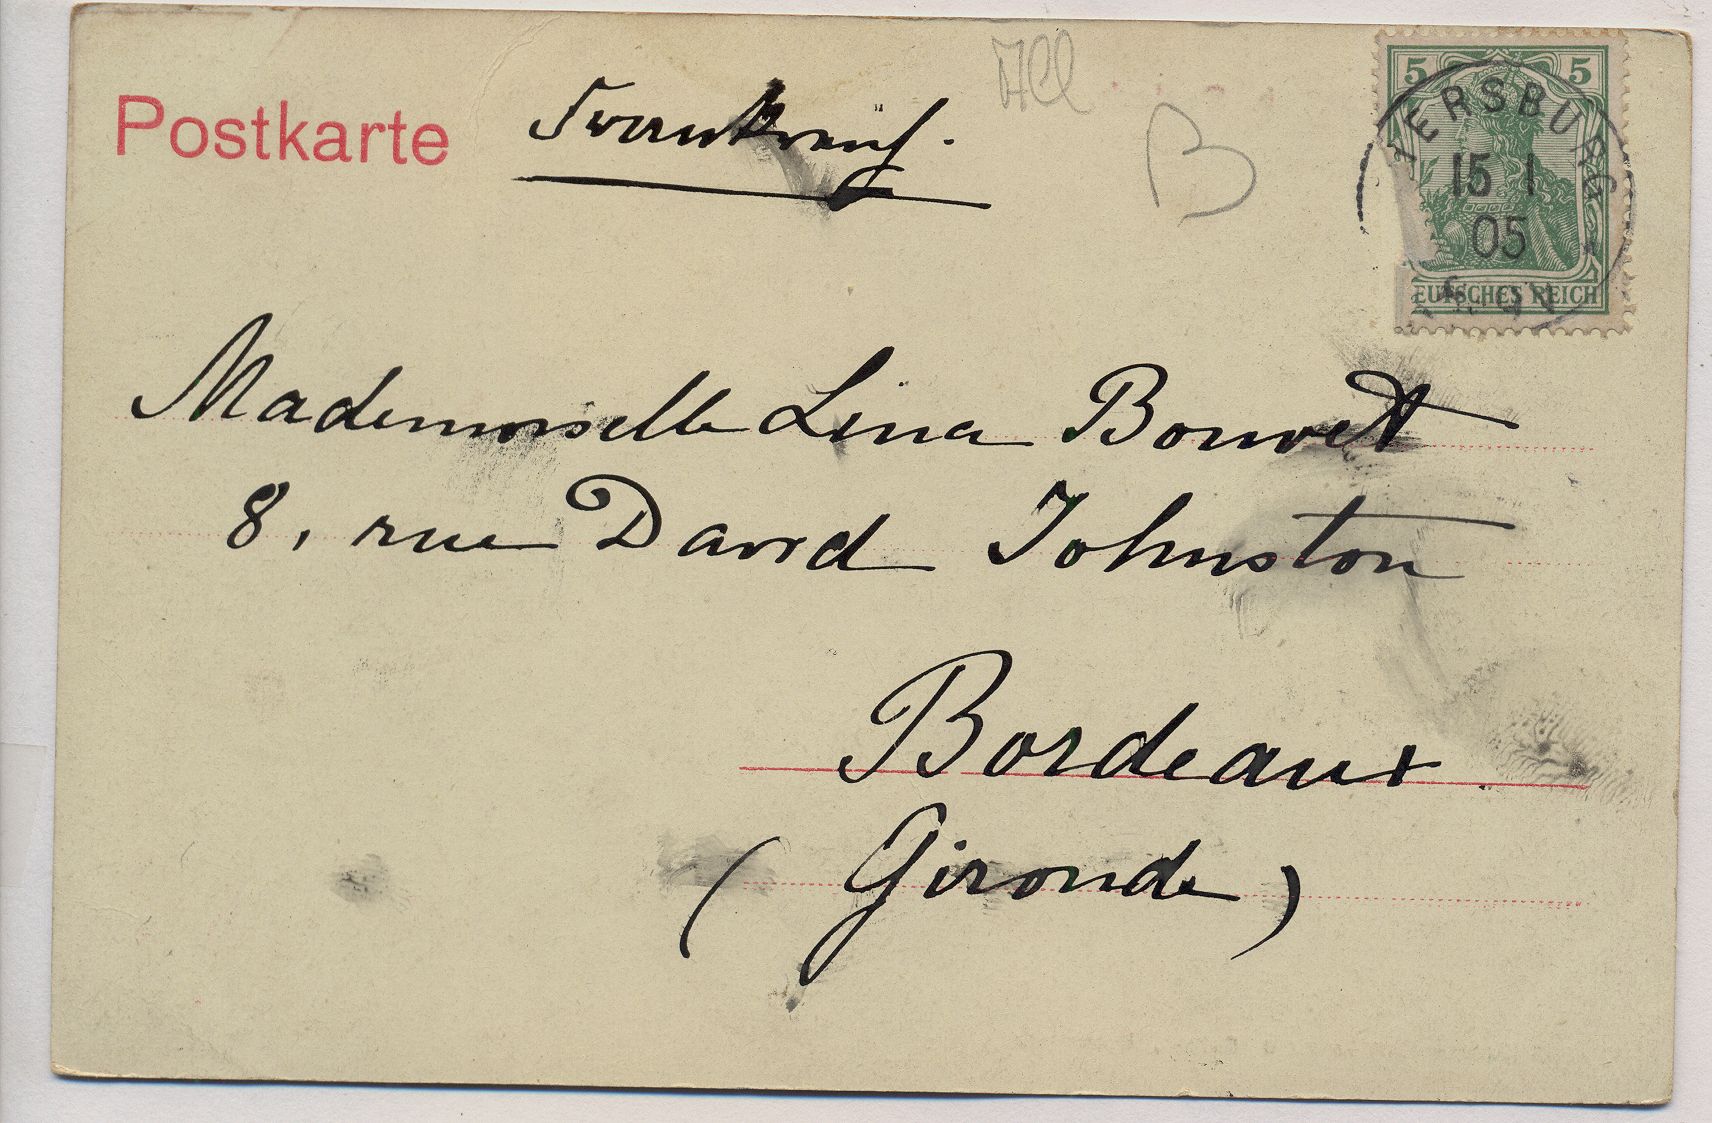 Postkarte
Frankreich.
All
B
5 5
ERSBURG
15 1
05
EUTSCHES REICH
Mademoiselle Lina Bouvet
8, rue David Johnston
Bordeaux
(Gironde)